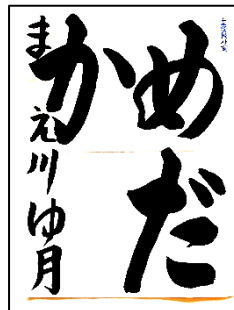 めだ
か
まえ川ゆ月